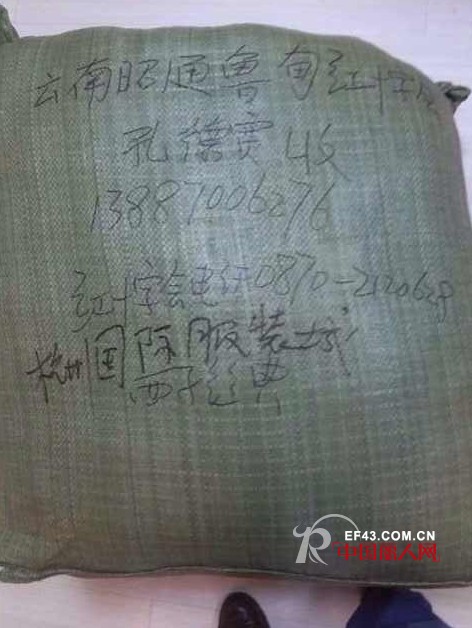 云南昭通鲁甸红十字会
孔德贾收
13887006276
红十字会电话0870-2120628
杭州国际服装城
西
EF43.COM.CN
中国丽人网